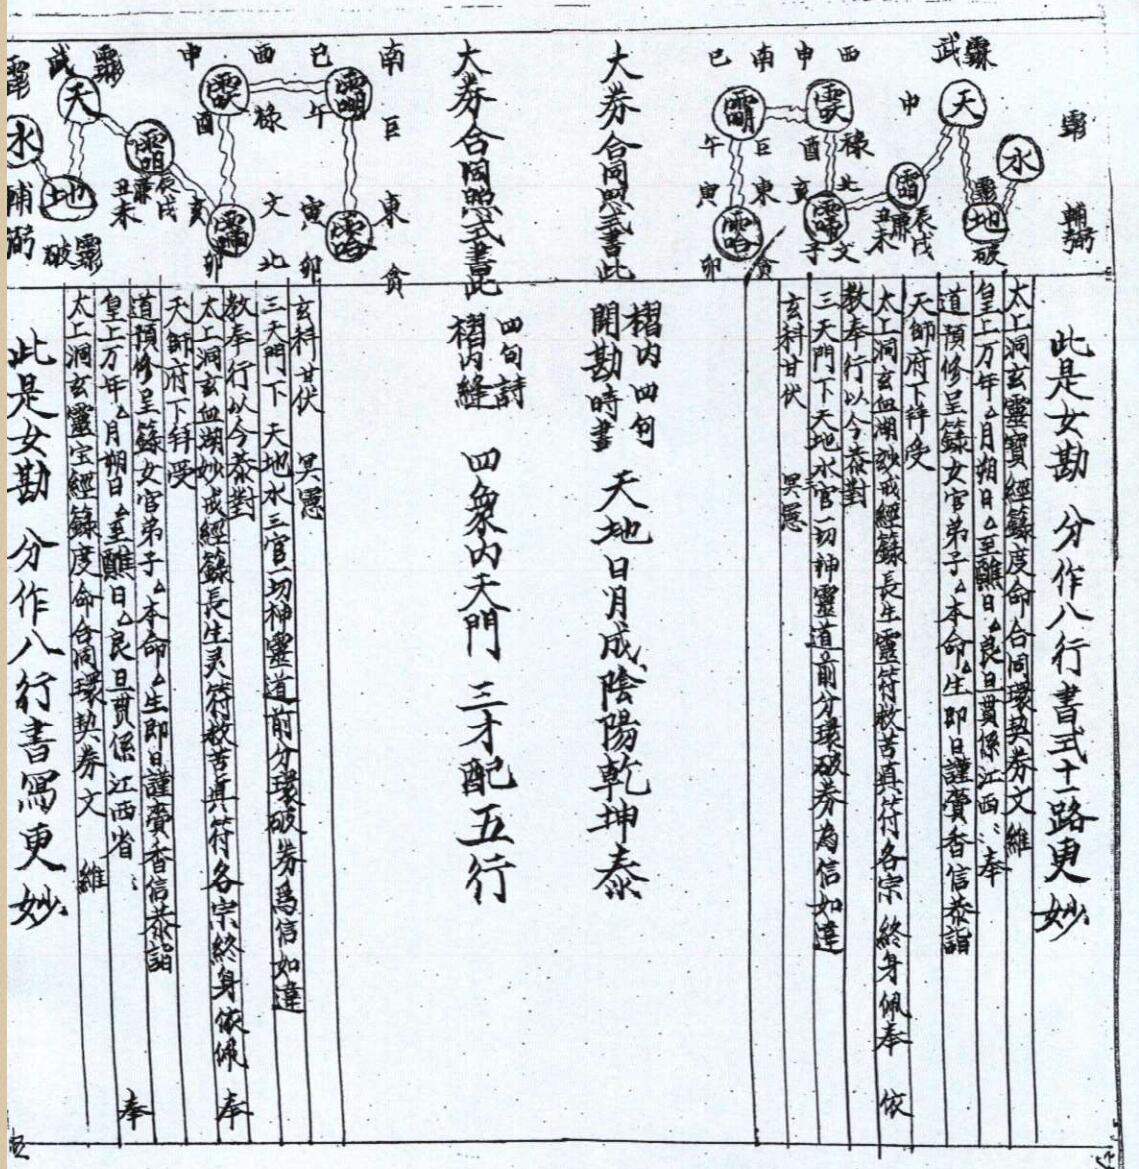 此是女勘 分作八行書式十一路更妙
太上洞玄靈寶經籙度命合同環契券文 維
皇上万年 月朔日 至醮日 良旦貫係江西 奉
道預修呈籙女官弟子 本命 生即日謹賫香信恭詣
天師府下拜受
太上洞玄血湖妙戒經籙長生靈符救苦真符各宗終身佩奉 依
教奉行以今恭對
三天門下天地水三官一切神靈道前分環破券為信如違
玄科甘伏 冥愿
武
天
申
水
輔弼
地
破
辰戌
丑未
廉
巳 南 申 酉
午 巨 酉 祿
寅 東 亥 北
卯 貪 子 文
大券合同照式書此
褶内四句
開勘時書
天地日月成陰陽乾坤泰
大券合同照式書此
四句詩
褶内縫
四象内天門 三才配五行
南 巳 酉 申
巨 午 祿 酉
東 寅 文 亥
貪 卯 北 卯
武
天
辰戌
丑未
廉
水
地
輔弼
破
玄科甘伏 冥憲
三天門下 天地水三官一切神靈道前分環破券為信如違
教奉行以今恭對
太上洞玄血湖妙戒經籙長生灵符救苦真符各宗終身依佩 奉
天師府下拜受
道預修呈籙女官弟子 本命 生即日謹賫香信恭詣
皇上万年 月朔日 至醮日 良旦貫係江西省 奉
太上洞玄靈宝經籙度命合同環契券文 維
此是女勘 分作八行書寫更妙